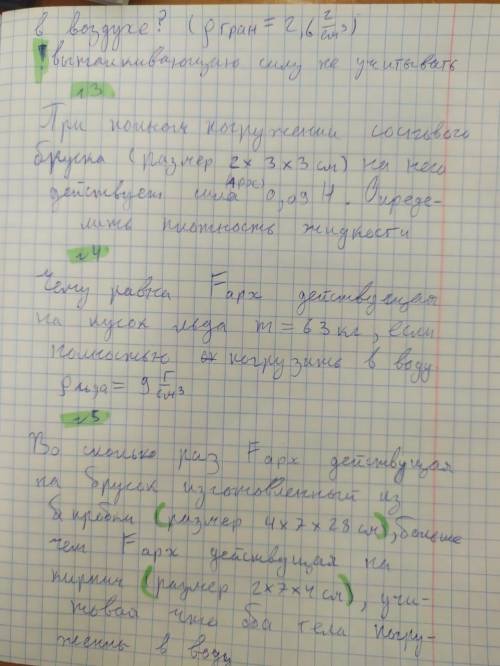 в воздухе? (ρ гран = 2,6 г/см³)
! выталкивающую силу не учитывать
№3
При полном погружении соснового
бруска (размер 2 × 3 × 3 см) на него
действует сила (Арх) 0,09 Н. Опреде-
лить плотность жидкости
№4
Чему равна Fарх действующая
на кусок льда m = 63 кг, если
полностью погрузить в воду
ρльда = 9 г/см³
№5
Во сколько раз Fарх действующая
на брусок изготовленный из
(размер 4×7×28 см), больше
чем Fарх действующая на
кирпич (размер 2×7×4 см), учи-
товая что оба тела погру-
женны в воду